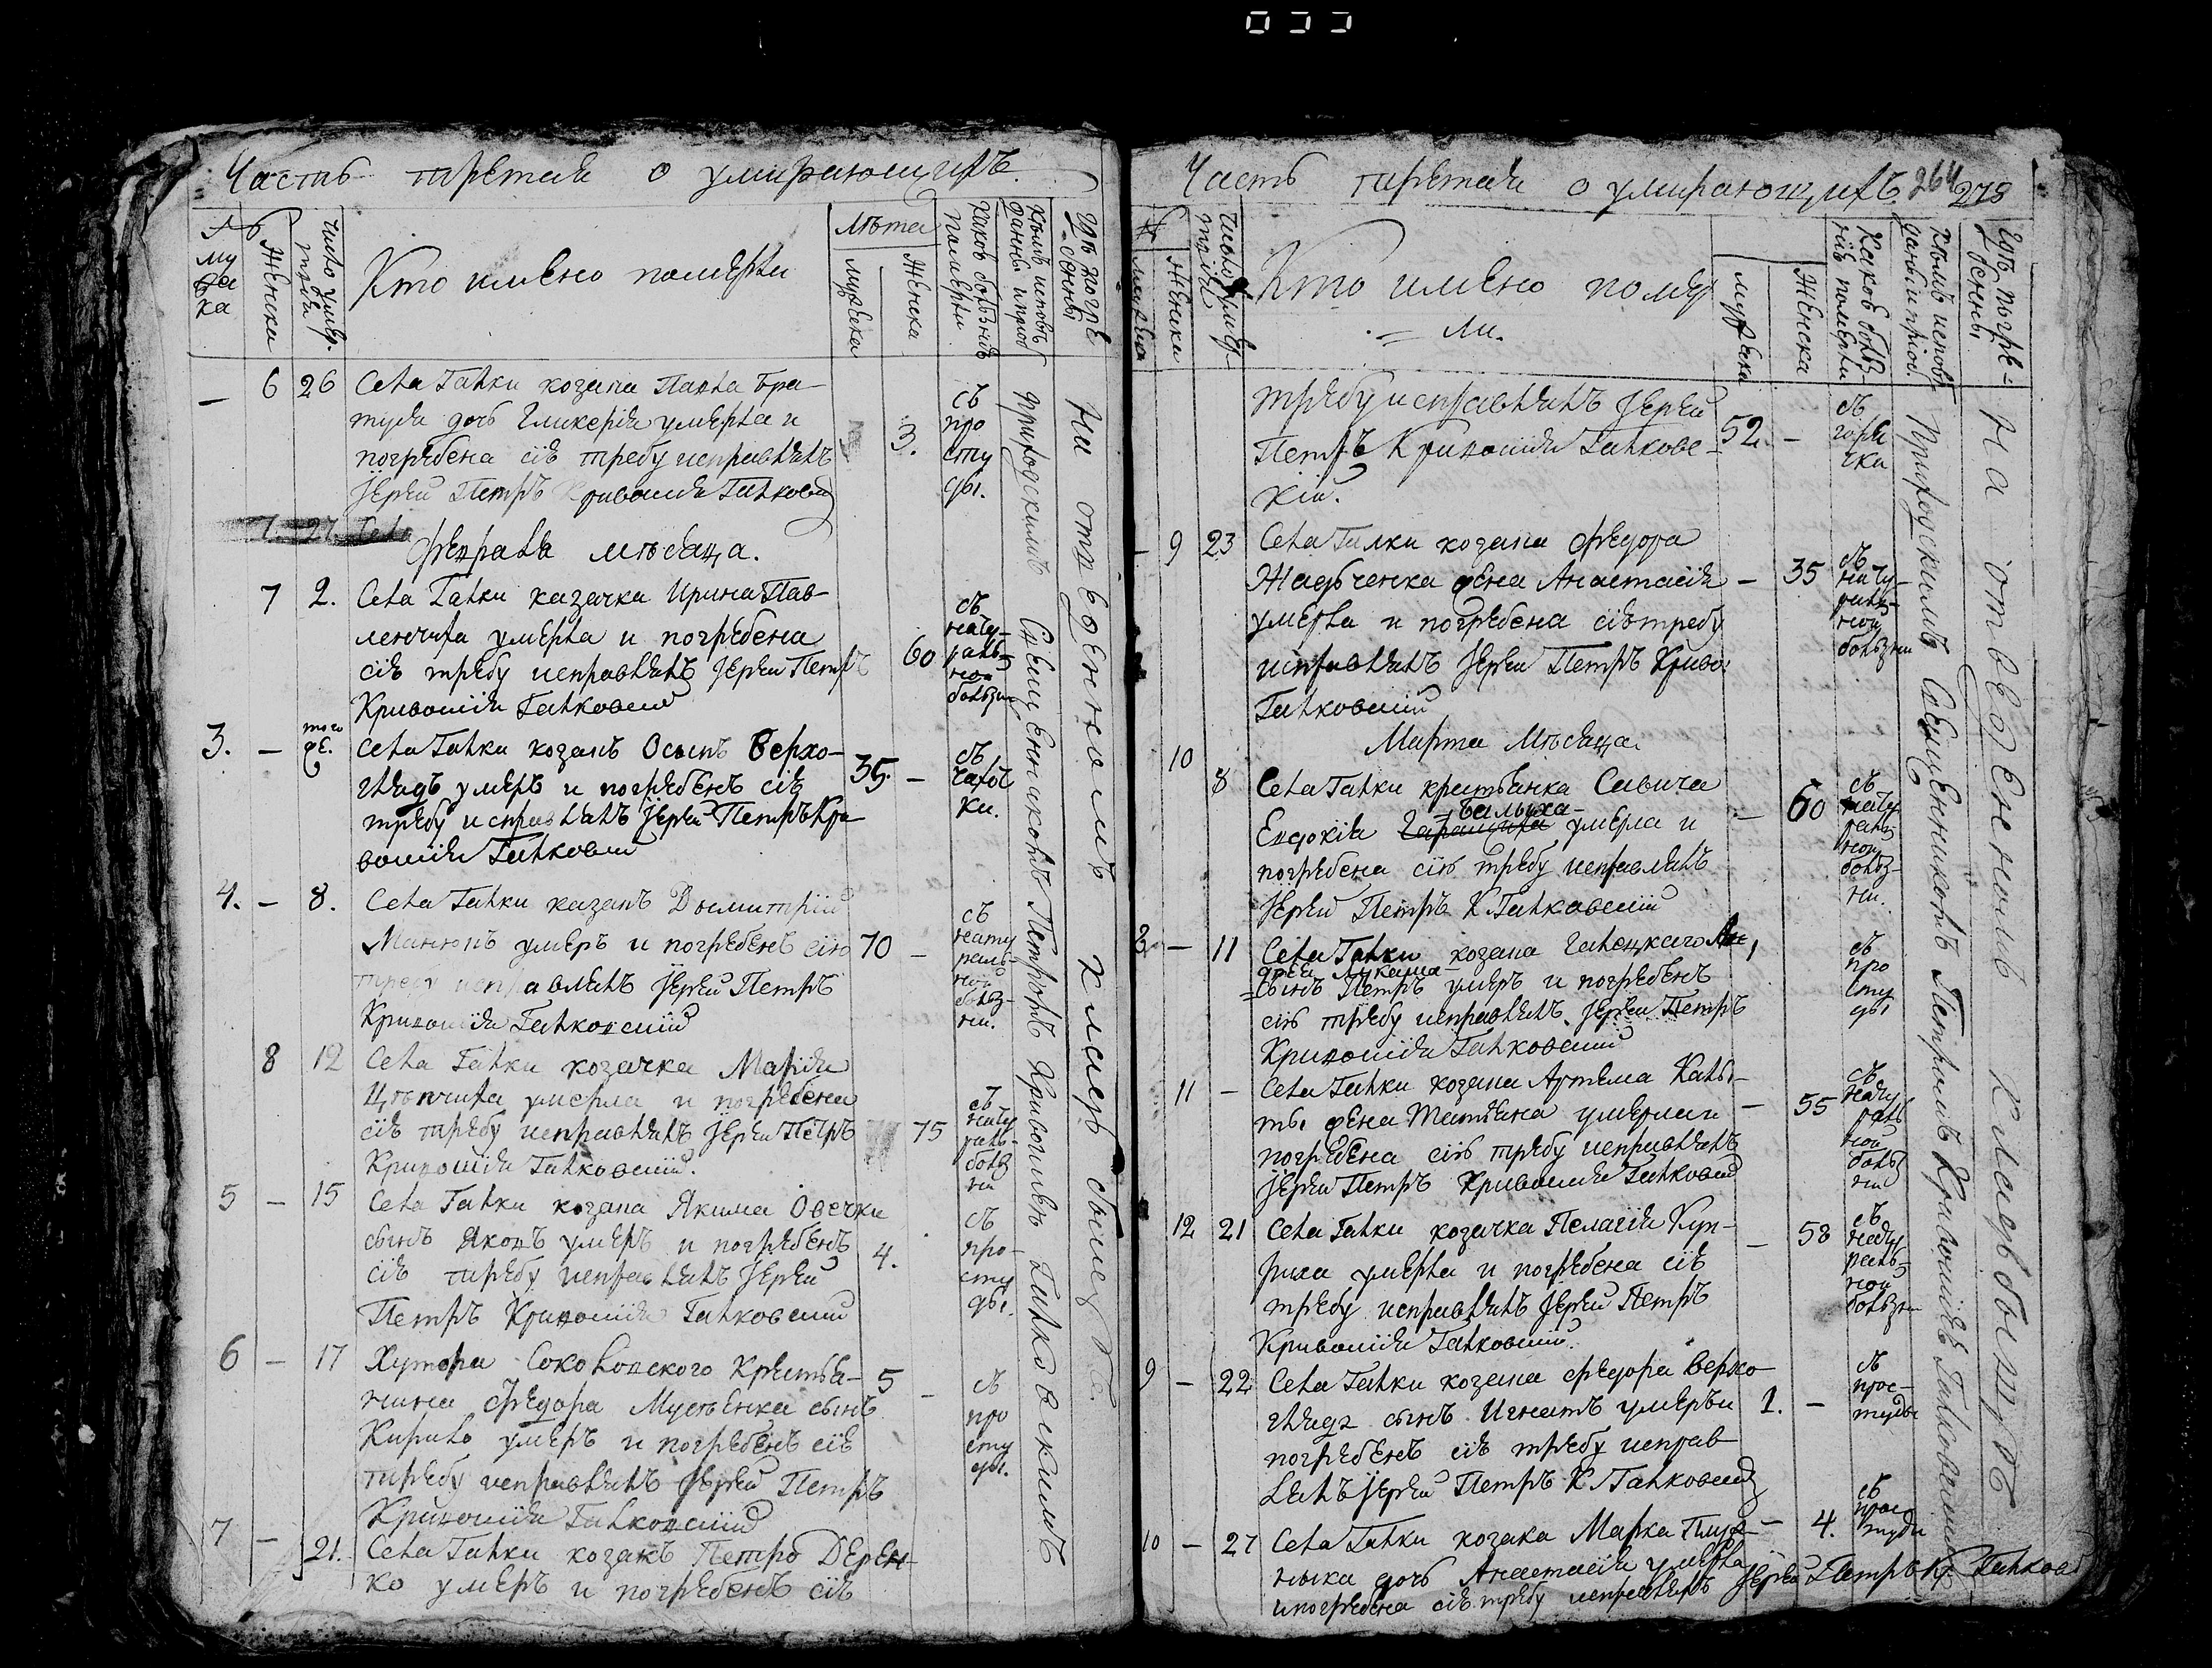 Часть третія о умирающихъ.
№
му
жеска
Женска
число умер.
Кто имено померли
Лѣта
мужеска
Женска
Какою болѣзнію
померли
Кѣмъ исповѣ
даны и пріоб
Гдѣ погре
бены
— 6 26 Села Галки козака Павла Бра-
туся дочь Гликерія умерла и
погребена сіе требу исправлялъ
Іерей Петръ Кривошія Галковскій
3. съ
про
сту
ды.
7. 27. Села
Февраля мѣсяца.
7 2. Села Галки казачка Ирина Пав-
ленчиха умерла и погребена
сіе требу исправлялъ Іерей Петръ
Кривошія Галковскій
60 съ
нату-
раль-
ной
болѣзни
3. — того
же. Села Галки козакъ Осыпъ Верхо-
глядъ умеръ и погребенъ сіе
требу исправлялъ Іерей Петръ Кри
вошія Галковскій
35. — съ
чахот
ки.
4. — 8. Села Галки казакъ Дымитрій
Манюпъ умеръ и погребенъ сію
требу исправлялъ Іерей Петръ
Кривошія Галковскій
70 — съ
нату
раль-
ной
болѣз-
ни.
8 12 Села Галки козачка Марія
умерла и погребена
сіе требу исправлялъ Іерей Петръ
Кривошія Галковскій.
75 съ
нату
раль-
болѣз
ни
5 — 15 Села Галки козака Якима Овечки
сынъ Яковъ умеръ и погребенъ
сіе требу исправлялъ Іерей
Петръ Кривошія Галковскій
4. съ
про-
сту
ды.
6 — 17 Хутора Соколовского Крестья-
нина Федора Мусѣенка сынъ
Кирило умеръ и погребенъ сіе
требу исправлялъ Іерей Петръ
Кривошія Галковскій
5 — съ
про
сту
ды.
7 — 21. Села Галки козакъ Петро Дерен-
ко умеръ и погребенъ сіе
Приходскимъ Священникомъ Петромъ Кривошіею Галковскимъ
На отведенномъ кладбыщѣ
Часть третія о умирающихъ 264 278
№
мужеска
Женска
число умер
Кто имено помер
= ли.
мужеска
Женска
Какою болѣз-
нію померли
Кѣмъ исповѣ
даны и пріоб.
Гдѣ погре-
бены
требу исправлялъ Іерей
Петръ Кривошія Галковс-
кій.
52. — съ
горя
чки
— 9 23 Села Галки козака Федора
Жадченка жена Анастасія
умерла и погребена сіе требу
исправлялъ Іерей Петръ Криво:
Галковскій
— 35 съ
нату-
раль-
ной
болѣзни
Марта Мѣсяца.
10 8 Села Галки крестьянка Савича
Балыха
Евдокія умерла и
погребена сію требу исправлялъ
Іерей Петръ К Галковскій
— 60 съ
нату
раль
ной
болѣз-
ни.
8 — 11 Села Галки козака Галецкаго Ан
дрея Лукаша
сынъ Петръ умеръ и погребенъ
сію требу исправлялъ Іерей Петръ
Кривошія Галковскій
1 съ
про
сту
ды
11 — Села Галки козака Артема Калы-
ты жена Татіяна умерла и
погребена сію требу исправлялъ
Іерей Петръ Кривошія Галковскій
— 55 съ
нату
раль
ной
болѣз
ни
12 21 Села Галки козачка Пелагія Куп-
риха умерла и погребена сіе
требу исправлялъ Іерей Петръ
Кривошія Галковскій.
— 58 съ
нату
раль-
ной
болѣзни
9 — 22 Села Галки козака Федора Верхо
гляда сынъ Игнатъ умеръ и
погребенъ сіе требу исправ
лялъ Іерей Петръ К Галковскій
1. — съ
прос-
туды
10 — 27 Села Галки козака Марка Плуж-
ныка дочь Анастасія умерла
и погребена сіе требу исправлялъ Іерей Петръ Кр Галков
— 4. съ
прос
туди
Приходскимъ Священникомъ Петромъ Кривошіею Галковскимъ
На отведенномъ кладбыщѣ